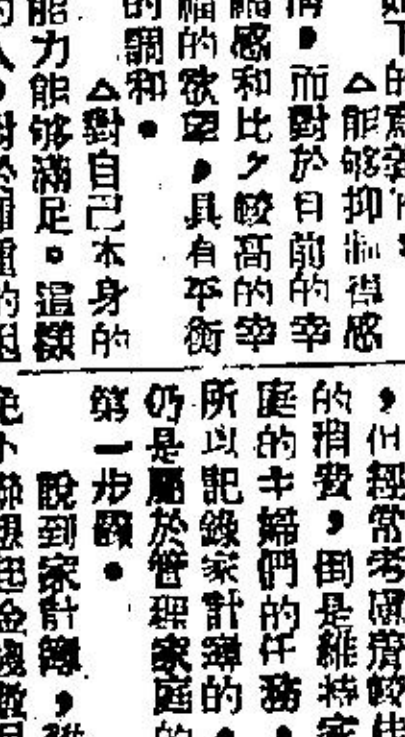 如下的
△能够抑制得感
情，而對於目前的幸
福感和比夕較高的幸
福的欲望，具有平衡
的調和。
△對自己本身的
能力能够滿足。這樣
人，對於種的困
，但經常考慮
的消費，倒是維持家
庭的主婦們的任務。
所以記錄家計簿的，
仍是屬於管理家庭的
第一步驟。
說到家計簿，
聯想起金錢